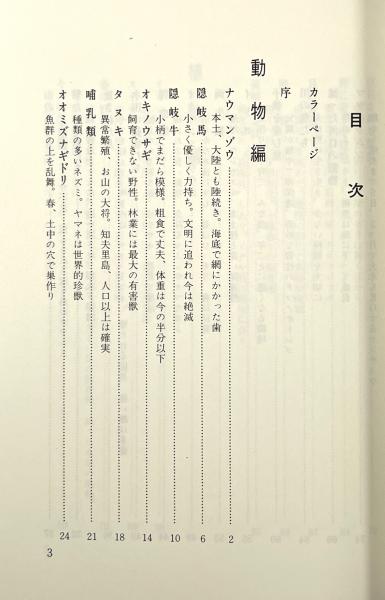 目次
カラーページ
序
動物編
ナウマンゾウ……………2
本土、大陸とも陸続き。海底で網にかかった歯
隠岐馬……………6
小さく優しく力持ち。文明に追われ今は絶滅
隠岐牛……………10
小柄でまだら模様。粗食で丈夫、体重は今の半分以下
オキノウサギ……………14
飼育できない野性。林業には最大の有害獣
タヌキ……………18
異常繁殖、お山の大将。知夫里島、人口以上は確実
哺乳類……………21
種類の多いネズミ。ヤマネは世界的珍獣
オオミズナギドリ……………24
魚群の上を乱舞。春、土中の穴で巣作り
3